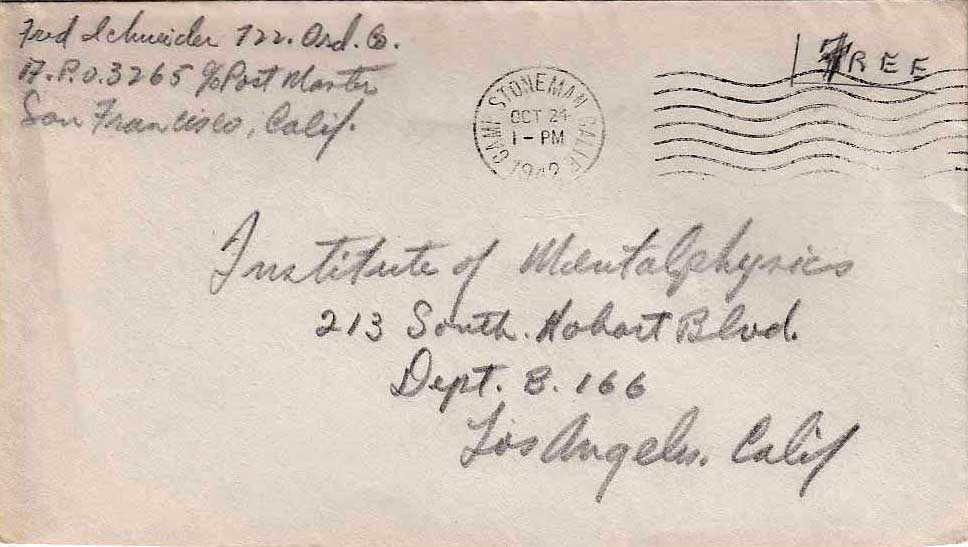 Fred Schneider 722. Ord. Co.
A.P.O. 3265 c/o Post Master
San Francisco, Calif.
CAMP STONEMAN CALIF.
OCT 24
1 - PM
1942
FREE
Institute of Mentalphysics
213 South. Hobart Blvd.
Dept. B. 166
Los Angeles. Calif